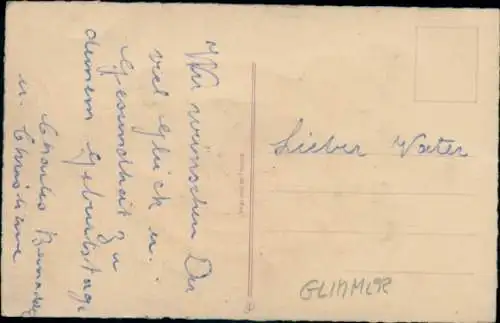 Lieber Vater
Wir wünschen Dir
viel Glück u.
Gesundheit zu
deinem Geburtstage
Charles
u. Christiane